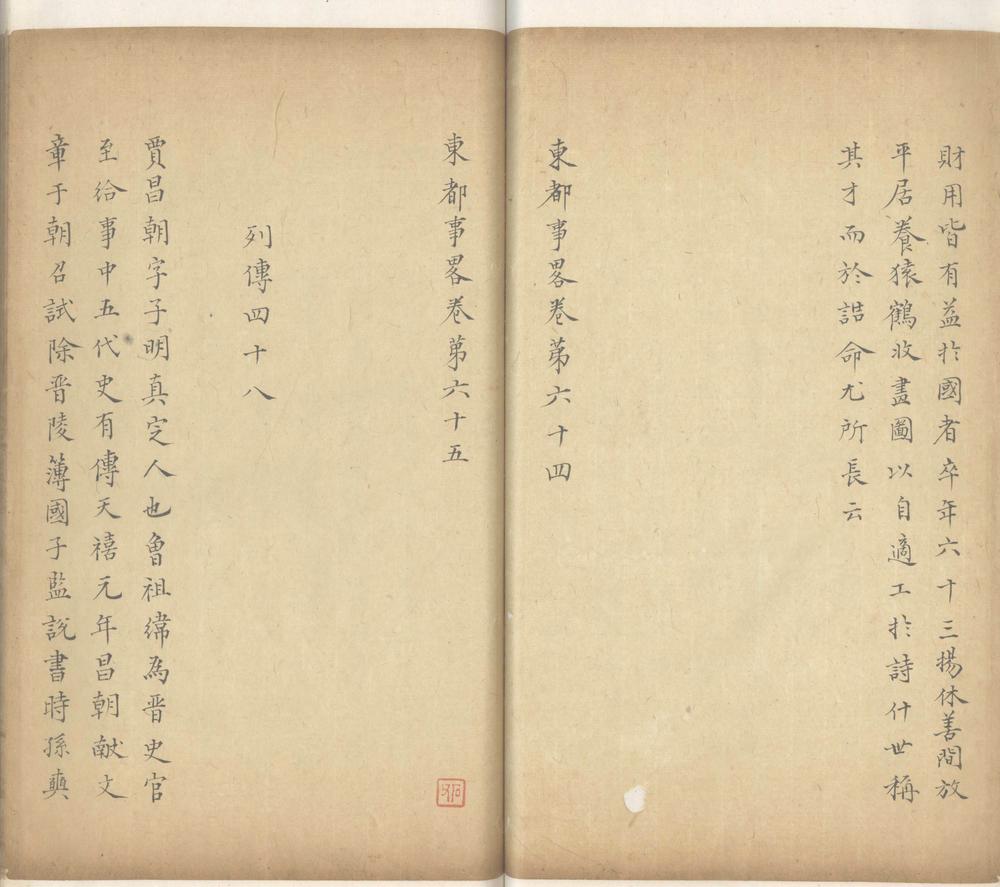 財用皆有益扵國者卒年六十三揚休善閒放
平居養猿鶴收畫圖以自適工扵詩什世稱
其才而於誥命尤所長云
東都事畧卷苐六十四
東都事畧卷苐六十五
列傳四十八
賈昌朝字子明真定人也曾祖緯為晋史官
至給事中五代史有傳天禧元年昌朝献文
章于朝召試除晋陵簿國子監說書時孫奭